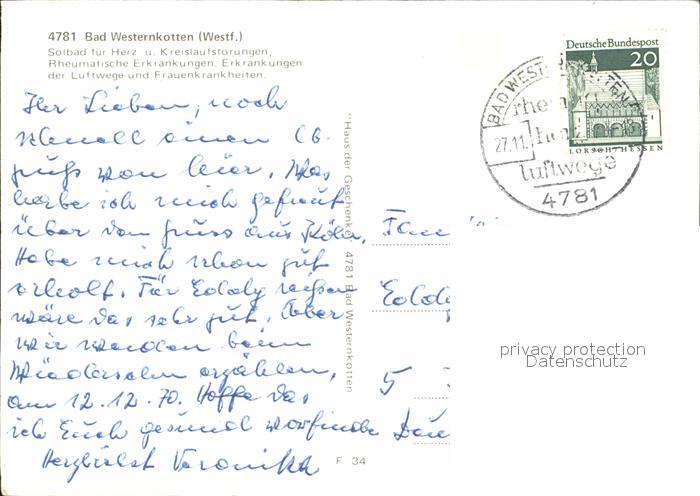 4781 Bad Westernkotten (Westf.)
Solbad für Herz u. Kreislaufstörungen,
Rheumatische Erkrankungen, Erkrankungen
der Luftwege und Frauenkrankheiten.
Ihr Lieben, noch
schnell einen lb.
gruß von hier. Was
habe ich mich gefreut
über den gruss aus Köln,
Habe mich schon gut
erholt. Für Eddy
wäre das sehr gut. Aber
wir werden beim
Wiedersehn erzählen,
am 12.12.70. Hoffe das
ich Euch gesund vorfinde
Herzlichst Veronika
"Haus der Geschenke" 4781 Bad Westernkotten
F 34
Fam
Eddy
5
Deutsche Bundespost
20
LORSCH/HESSEN
BAD WESTERNKOTTEN
27.11.
rheuma
herz
luftwege
4781
privacy protection
Datenschutz